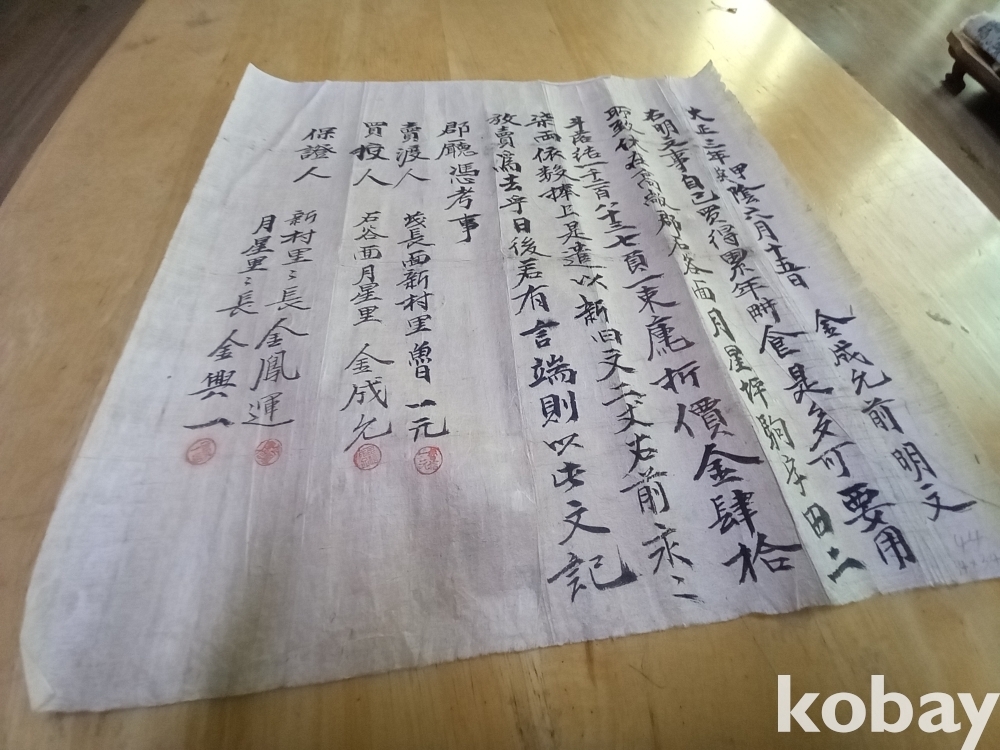 大正三年 甲陰六月十五日 金成允前明文
右明文事自己買得累年畊食是多可要用
所致伏在高敞郡石谷面月星坪駒字田二
斗落結 七頁一束 折價金肆拾
柒両依數捧上是遣以新旧文二丈右前永〻
放賣爲去乎日後若有言端則以此文記
郡廳憑考事
賣渡人 茂長面新村里 魯一元
買授人 石谷面月星里 金成允
保證人 新村里〻長 金鳳運
月星里〻長 金興一
kobay